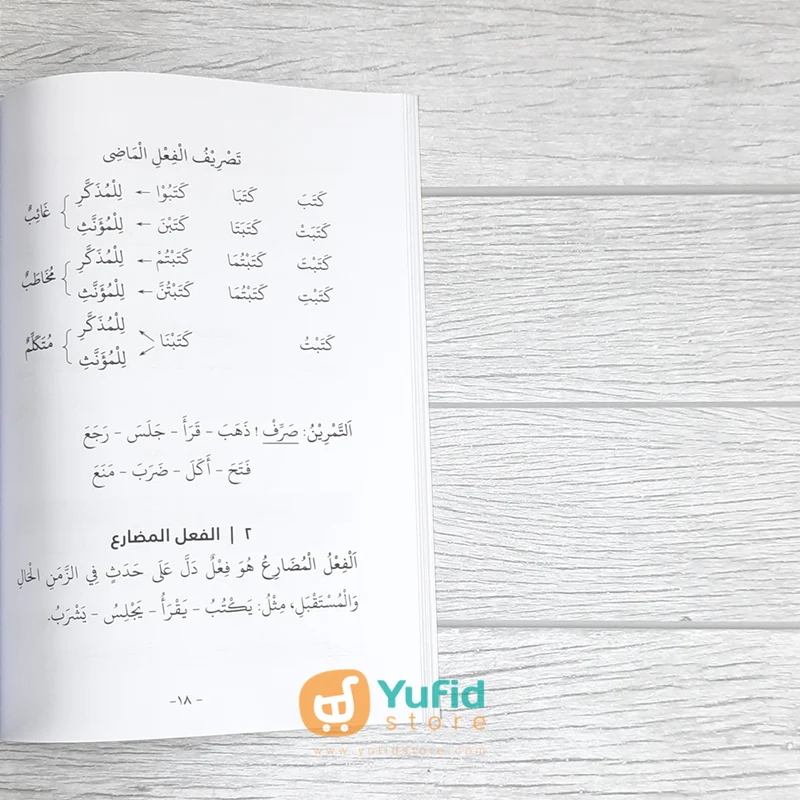 تَصْرِيْفُ الْفِعْلِ الْمَاضِى
كَتَبَ كَتَبَا كَتَبُوْا ← لِلْمُذَكَّرِ
كَتَبَتْ كَتَبَتَا كَتَبْنَ ← لِلْمُؤَنَّثِ
غَائِبٌ
كَتَبْتَ كَتَبْتُمَا كَتَبْتُمْ ← لِلْمُذَكَّرِ
كَتَبْتِ كَتَبْتُمَا كَتَبْتُنَّ ← لِلْمُؤَنَّثِ
مُخَاطَبٌ
كَتَبْتُ كَتَبْنَا
لِلْمُذَكَّرِ
لِلْمُؤَنَّثِ
مُتَكَلِّمٌ
اَلتَّمْرِيْنُ: صَرِّفْ! ذَهَبَ – قَرَأَ – جَلَسَ – رَجَعَ
فَتَحَ – أَكَلَ – ضَرَبَ – مَنَعَ
٢ | الفعل المضارع
اَلْفِعْلُ الْمُضَارِعُ هُوَ فِعْلٌ دَلَّ عَلَى حَدَثٍ فِي الزَّمَنِ الْحَالِ
وَالْمُسْتَقْبَلِ، مِثْلُ: يَكْتُبُ – يَقْرَأُ – يَجْلِسُ – يَشْرَبُ.
-١٨-
Yufid
store
www.yufidstore.com